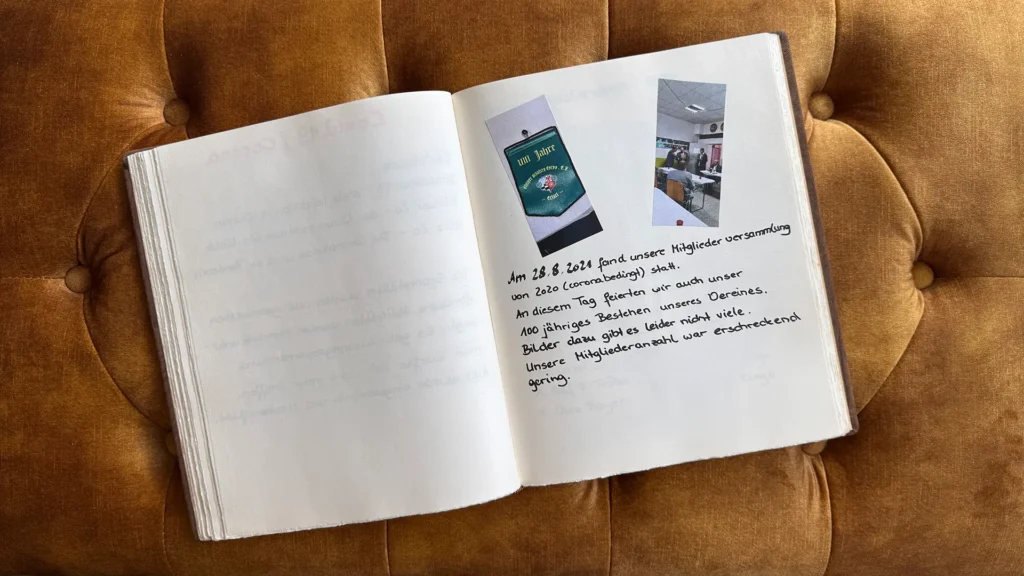 100 Jahre
Am 28.8.2021 fand unsere Mitglieder versammlung
von 2020 (coronabedingt) statt.
An diesem Tag feierten wir auch unser
100 jähriges Bestehen unseres Vereines.
Bilder dazu gibt es leider nicht viele.
Unsere Mitgliederanzahl war erschreckend
gering.